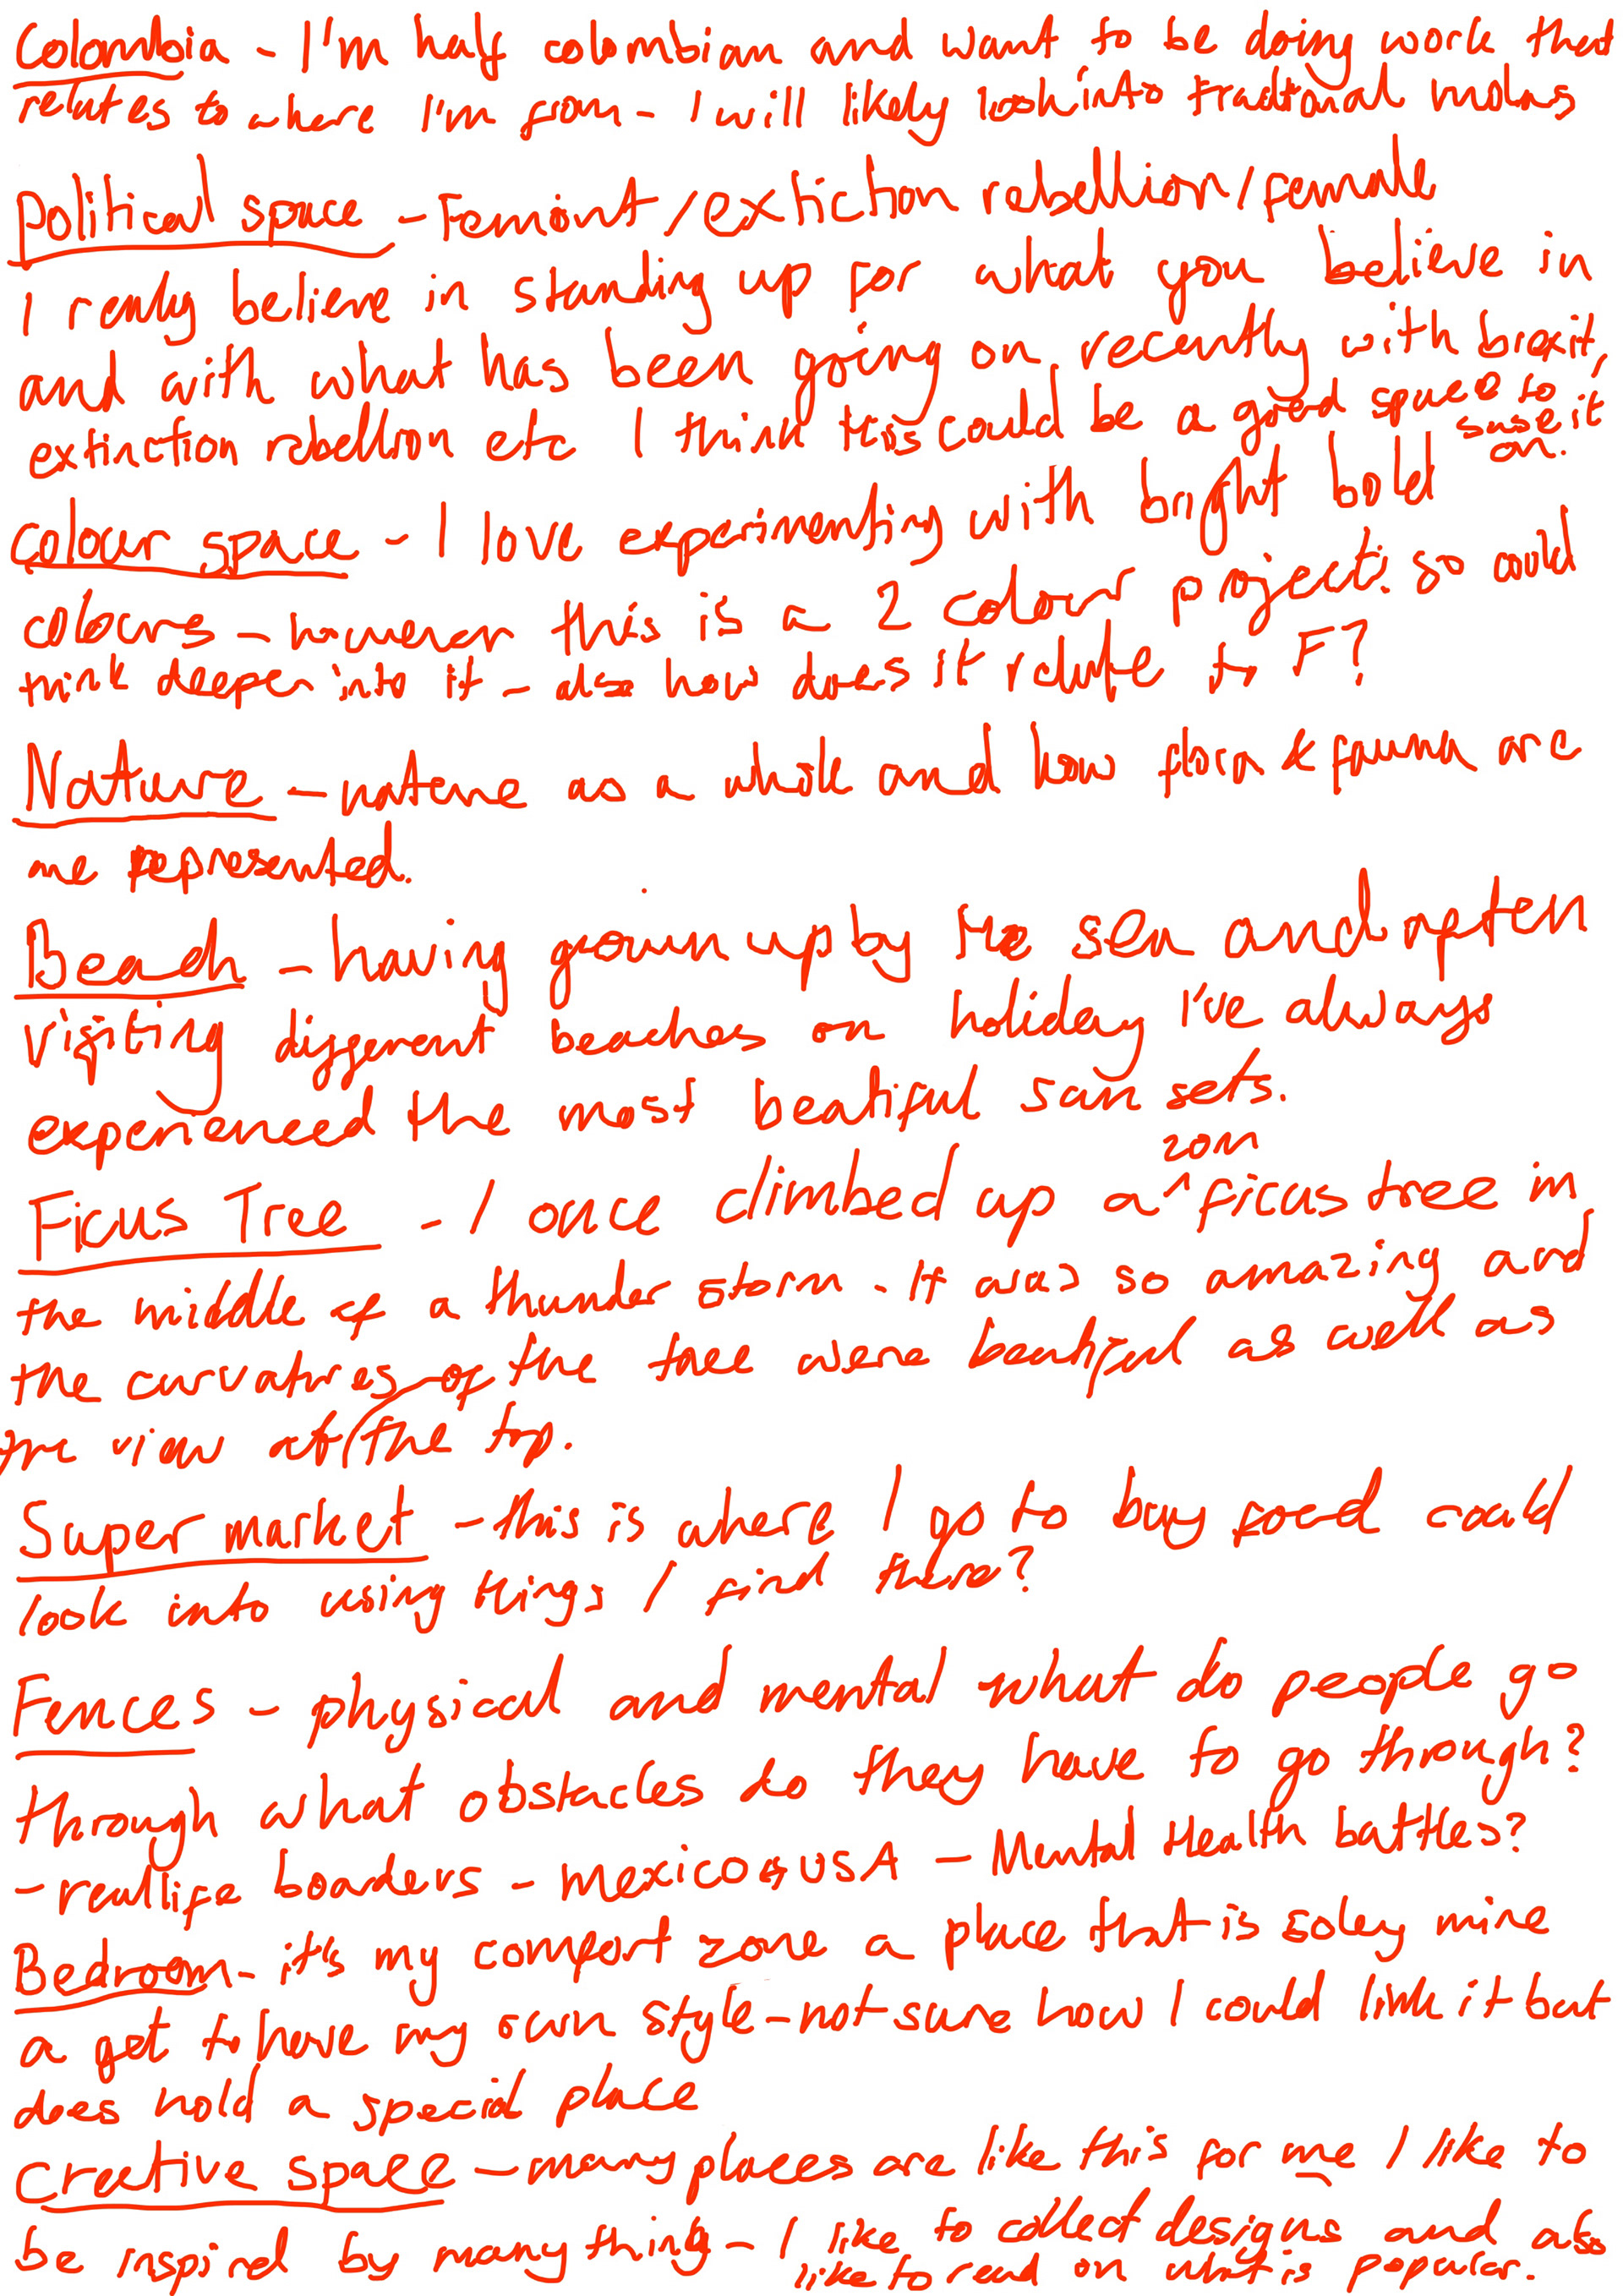 Colombia - I'm half colombian and want to be doing work that
relates to where I'm from - I will likely look into traditional molas
Political space - Feminist/extiction rebellion/female
I really believe in standing up for what you believe in
and with what has been going on recently with brexit,
extinction rebellion etc I think this could be a good space to
base it
on.
colour space - I love experimenting with bright bold
colours - however this is a 2 colour project. so could
think deeper into it - also how does it relate to F?
Nature - nature as a whole and how flora & fauna are
are represented.
Beach - having grown up by the sea and often
visiting different beaches on holiday I've always
experienced the most beatiful sun sets.
20m
Ficus Tree - I once climbed up a ^ ficus tree in
the middle of a thunder storm - It was so amazing and
the curvatures of the tree were beatiful as well as
the view at the top.
Super market - this is where I go to buy food could
look into using things I find there?
Fences - physical and mental what do people go
through what obstacles do they have to go through?
- real life boarders - mexico & USA - Mental Health battles?
Bedroom - it's my comfort zone a place that is soley mine
a get to have my own style - not sure how I could link it but
does hold a special place
Creative space - many places are like this for me I like to
be inspired by many thing - I like to collect designs and also
like to read on what is popular.